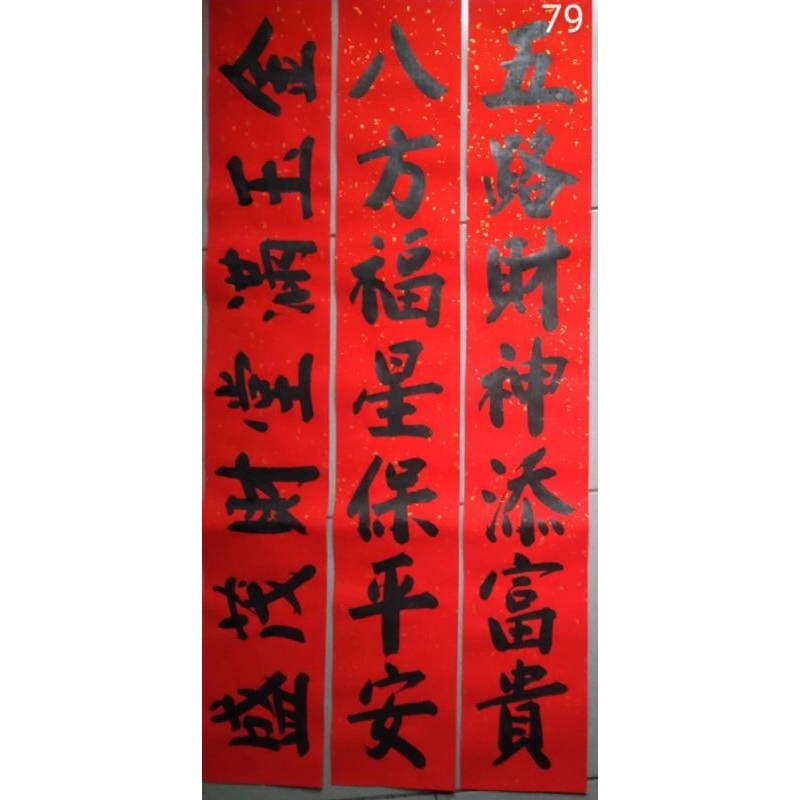 79
五路財神添富貴
八方福星保平安
金玉滿堂財茂盛